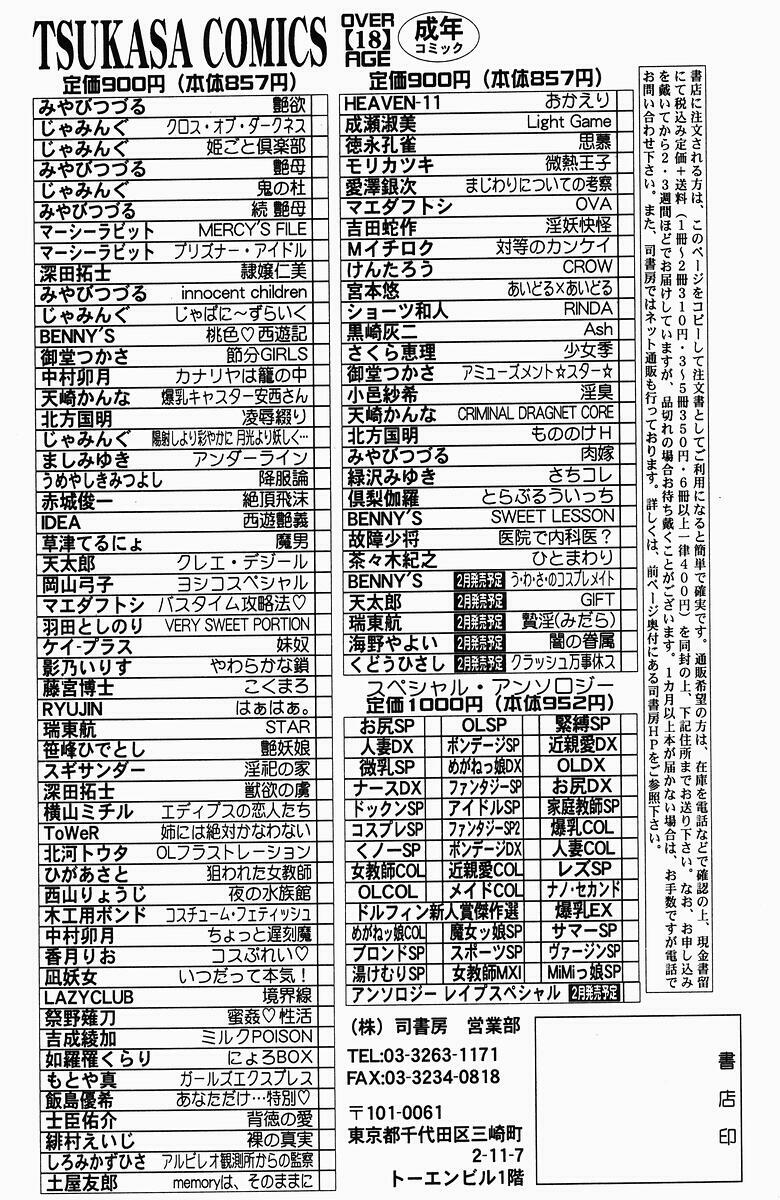 TSUKASA COMICS
OVER
【18】
AGE
成年
コミック
定価900円（本体857円）
みやびつづる 艶欲
じゃみんぐ クロス・オブ・ダークネス
じゃみんぐ 姫ごと倶楽部
みやびつづる 艶母
じゃみんぐ 鬼の杜
みやびつづる 続 艶母
マーシーラビット MERCY'S FILE
マーシーラビット プリズナー・アイドル
深田拓士 隷嬢仁美
みやびつづる innocent children
じゃみんぐ じゃぱに〜ずらいく
BENNY'S 桃色♡西遊記
御堂つかさ 節分GIRLS
中村卯月 カナリヤは籠の中
天崎かんな 爆乳キャスター安西さん
北方国明 凌辱綴り
じゃみんぐ 陽射しより彩やかに 月光より妖しく…
ましみゆき アンダーライン
うめやしきみつよし 降服論
赤城俊一 絶頂飛沫
IDEA 西遊艶義
草津てるにょ 魔男
天太郎 クレエ・デジール
岡山弓子 ヨシコスペシャル
マエダフトシ バスタイム攻略法♡
羽田としのり VERY SWEET PORTION
ケイ-プラス 妹奴
影乃いりす やわらかな鎖
藤宮博士 こくまろ
RYUJIN はぁはぁ。
瑞東航 STAR
笹峰ひでとし 艶妖娘
スギサンダー 淫祀の家
深田拓士 獣欲の虜
横山ミチル エディプスの恋人たち
ToWeR 姉には絶対かなわない
北河トウタ OLフラストレーション
ひがあさと 狙われた女教師
西山りょうじ 夜の水族館
木工用ボンド コスチューム・フェティッシュ
中村卯月 ちょっと遅刻魔
香月りお コスぷれい♡
凪妖女 いつだって本気！
LAZYCLUB 境界線
祭野薙刀 蜜姦♡性活
吉成綾加 ミルクPOISON
如羅罹くらり にょろBOX
もとや真 ガールズエクスプレス
飯島優希 あなただけ…特別♡
士臣佑介 背徳の愛
緋村えいじ 裸の真実
しろみかずひさ アルビレオ観測所からの監察
土屋友郎 memoryは、そのままに
定価900円（本体857円）
HEAVEN-11 おかえり
成瀬淑美 Light Game
徳永孔雀 思慕
モリカツキ 微熱王子
愛澤銀次 まじわりについての考察
マエダフトシ OVA
吉田蛇作 淫妖快怪
Mイチロク 対等のカンケイ
けんたろう CROW
宮本悠 あいどる×あいどる
ショーツ和人 RINDA
黒崎灰二 Ash
さくら恵理 少女季
御堂つかさ アミューズメント☆スター☆
小邑紗希 淫臭
天崎かんな CRIMINAL DRAGNET CORE
北方国明 もののけH
みやびつづる 肉嫁
緑沢みゆき さちコレ
倶梨伽羅 とらぶるういっち
BENNY'S SWEET LESSON
故障少将 医院で内科医？
茶々木紀之 ひとまわり
BENNY'S 2月発売予定 う・わ・さ・のコスプレメイト
天太郎 2月発売予定 GIFT
瑞東航 2月発売予定 贄淫(みだら)
海野やよい 2月発売予定 闇の眷属
くどうひさし 2月発売予定 クラッシュ万事休ス
スペシャル・アンソロジー
定価1000円（本体952円）
お尻SP OLSP 緊縛SP
人妻DX ボンデージSP 近親愛DX
微乳SP めがねっ娘DX OLDX
ナースDX ファンタジーSP お尻DX
ドックンSP アイドルSP 家庭教師SP
コスプレSP ファンタジーSP2 爆乳COL
くノ一SP ボンデージDX 人妻COL
女教師COL 近親愛COL レズSP
OLCOL メイドCOL ナノ・セカンド
ドルフィン新人賞傑作選 爆乳EX
めがねッ娘COL 魔女ッ娘SP サマーSP
ブロンドSP スポーツSP ヴァージンSP
湯けむりSP 女教師MXI MiMiっ娘SP
アンソロジー レイプスペシャル 2月発売予定
書店に注文される方は、このページをコピーして注文書としてご利用になると簡単で確実です。通販希望の方は、在庫を電話などで確認の上、現金書留
にて税込み定価＋送料（1冊〜2冊310円・3〜5冊350円・6冊以上一律400円）を同封の上、下記住所までお送り下さい。なお、お申し込み
を戴いてから2・3週間ほどでお届けしていますが、品切れの場合お待ち戴くことがございます。1カ月以上本が届かない場合は、お手数ですが電話で
お問い合わせ下さい。また、司書房ではネット通販も行っております。詳しくは、前ページ奥付にある司書房HPをご参照下さい。
（株）司書房 営業部
TEL:03-3263-1171
FAX:03-3234-0818
〒101-0061
東京都千代田区三崎町
2-11-7
トーエンビル1階
書店印